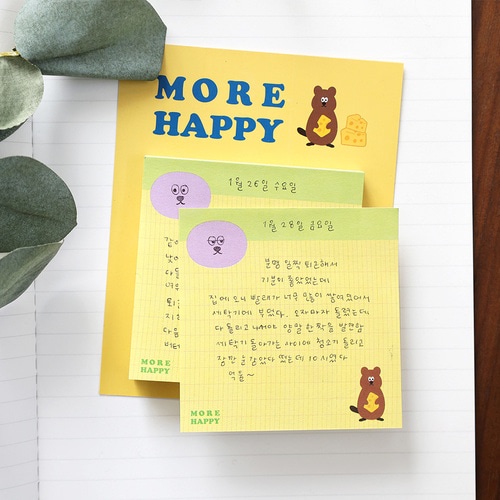 MORE
HAPPY
1월 26일 수요일
MORE
HAPPY
1월 28일 금요일
분명 일찍 퇴근해서
기분이 좋았었는데
집에 오니 빨래가 너무 많이 쌓여있어서
세탁기에 부었다. 오자마자 돌렸는데
다 돌리고 나서야 양말 한 짝을 발견함
세탁기 돌아가는 사이에 청소기 돌리고
잠깐 눈 감았다 떴는데 10시였다
억울~
MORE
HAPPY